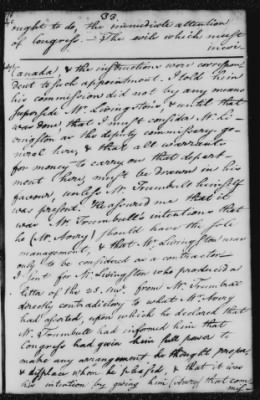 33.
ought to do, the immediate attention
of Congress. — The evils which must
inevi-
Canada) & the instructions were correspon-
dent to such appointment. I told him
his commission did not by any means
supersede Mr. Livingston's, & until that
was done that I must consider Mr. Li-
vingston as the deputy commissary ge-
neral here, & that all warrants
for money to carry on that depart-
ment here must be drawn in his
favour, unless Mr. Trumbull himself
was present. He assured me that it
was Mr. Trumbull's intention that
he (Mr. Avery) should have the sole
management, & that Mr. Livingston was
only to be considered as a contractor —
I sent for Mr. Livingston who produced a
letter of the 23. from Mr. Trumbull
directly contradictory to what Mr. Avery
had asserted, upon which he declared that
Mr. Trumbull had informed him that
Congress had given him full power to
make any arrangement he thought proper,
& displace whom he pleased, & that it was
his intention by giving him (Avery) that com-
mis-